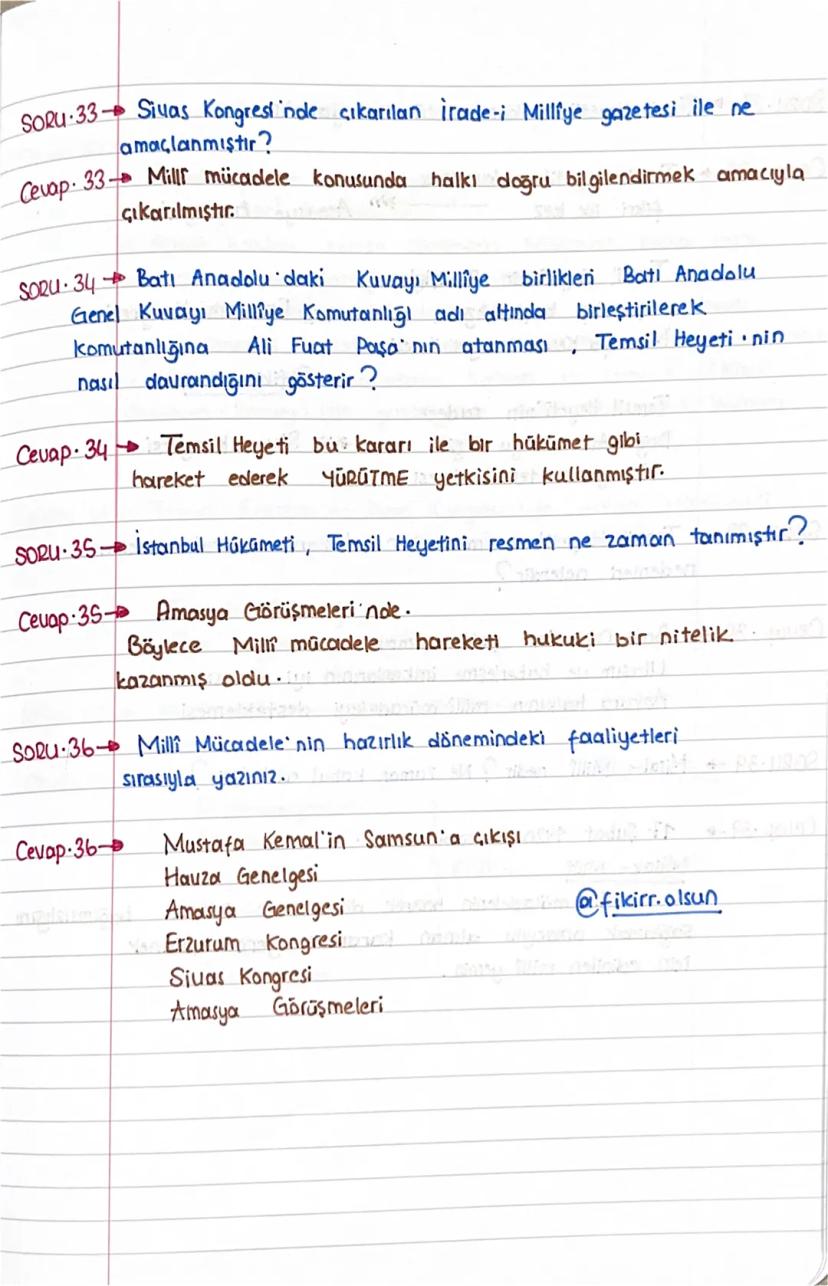 SORU·33→ Sivas Kongresi'nde çıkarılan İrade-i Millîye gazetesi ile ne
amaçlanmıştır?
Cevap·33→ Millî mücadele konusunda halkı doğru bilgilendirmek amacıyla
çıkarılmıştır.
SORU·34→ Batı Anadolu'daki Kuvayı Millîye birlikleri Batı Anadolu
Genel Kuvayı Millîye Komutanlığı adı altında birleştirilerek
komutanlığına Ali Fuat Paşa'nın atanması, Temsil Heyeti'nin
nasıl davrandığını gösterir?
Cevap·34→ Temsil Heyeti bu kararı ile bir hükümet gibi
hareket ederek YÜRÜTME yetkisini kullanmıştır.
SORU·35→ İstanbul Hükümeti, Temsil Heyetini resmen ne zaman tanımıştır?
Cevap·35→ Amasya Görüşmeleri'nde.
Böylece Millî mücadele hareketi hukuki bir nitelik
kazanmış oldu.
SORU·36→ Millî Mücadele'nin hazırlık dönemindeki faaliyetleri
sırasıyla yazınız.
Cevap·36→ Mustafa Kemal'in Samsun'a çıkışı
Havza Genelgesi
Amasya Genelgesi @fikirr.olsun
Erzurum Kongresi
Sivas Kongresi
Amasya Görüşmeleri